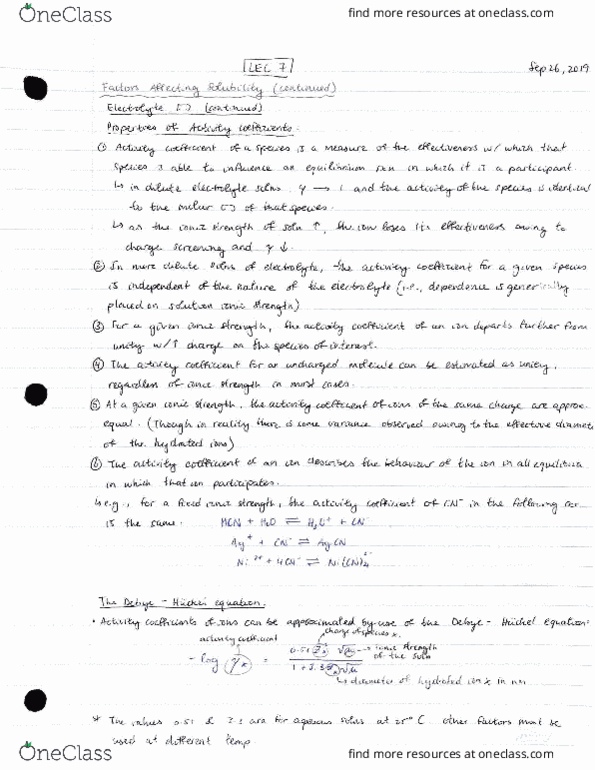 OneClass
find more resources at oneclass.com
LEC 7
Sep 26, 2019
Factors Affecting Solubility (continued)
Electrolyte [] (continued)
Properties of Activity coefficients:
① Activity coefficient of a species is a measure of the effectiveness w/ which that
species is able to influence an equilibrium rxn in which it is a participant.
↳ in dilute electrolyte solns. γ → 1 and the activity of the species is identical
to the molar [] of that species.
↳ as the ionic strength of soln ↑, the ion loses its effectiveness owing to
charge screening and γ ↓.
② In more dilute solns of electrolyte, the activity coefficient for a given species
is independent of the nature of the electrolyte (i.e., dependence is generically
placed on solution ionic strength)
③ For a given ionic strength, the activity coefficient of an ion departs further from
unity w/ ↑ charge on the species of interest.
④ The activity coefficient for an uncharged molecule can be estimated as unity,
regardless of ionic strength in most cases.
⑤ At a given ionic strength, the activity coefficient of ions of the same charge are approx.
equal. (Though in reality there is some variance observed owing to the effective diamete
of the hydrated ions)
⑥ The activity coefficient of an ion describes the behaviour of the ion in all equilibria
in which that ion participates.
↳ e.g., for a fixed ionic strength, the activity coefficient of CN⁻ in the following
is the same. HCN + H₂O ⇌ H₃O⁺ + CN⁻
Ag⁺ + CN⁻ ⇌ AgCN
Ni²⁺ + 4CN⁻ ⇌ Ni(CN)₄²⁻
The Debye - Hückel equation:
• Activity coefficients of ions can be approximated by use of the Debye - Hückel equation:
activity coefficient
charge of species x.
- log γx = 0.51 Zx² √μ → ionic strength of the soln
1 + 3.3 αx √μ
↳ diameter of hydrated ion x in nm
* The values 0.51 & 3.3 are for aqueous solns at 25°C other factors must be
used at different temp
OneClass
find more resources at oneclass.com